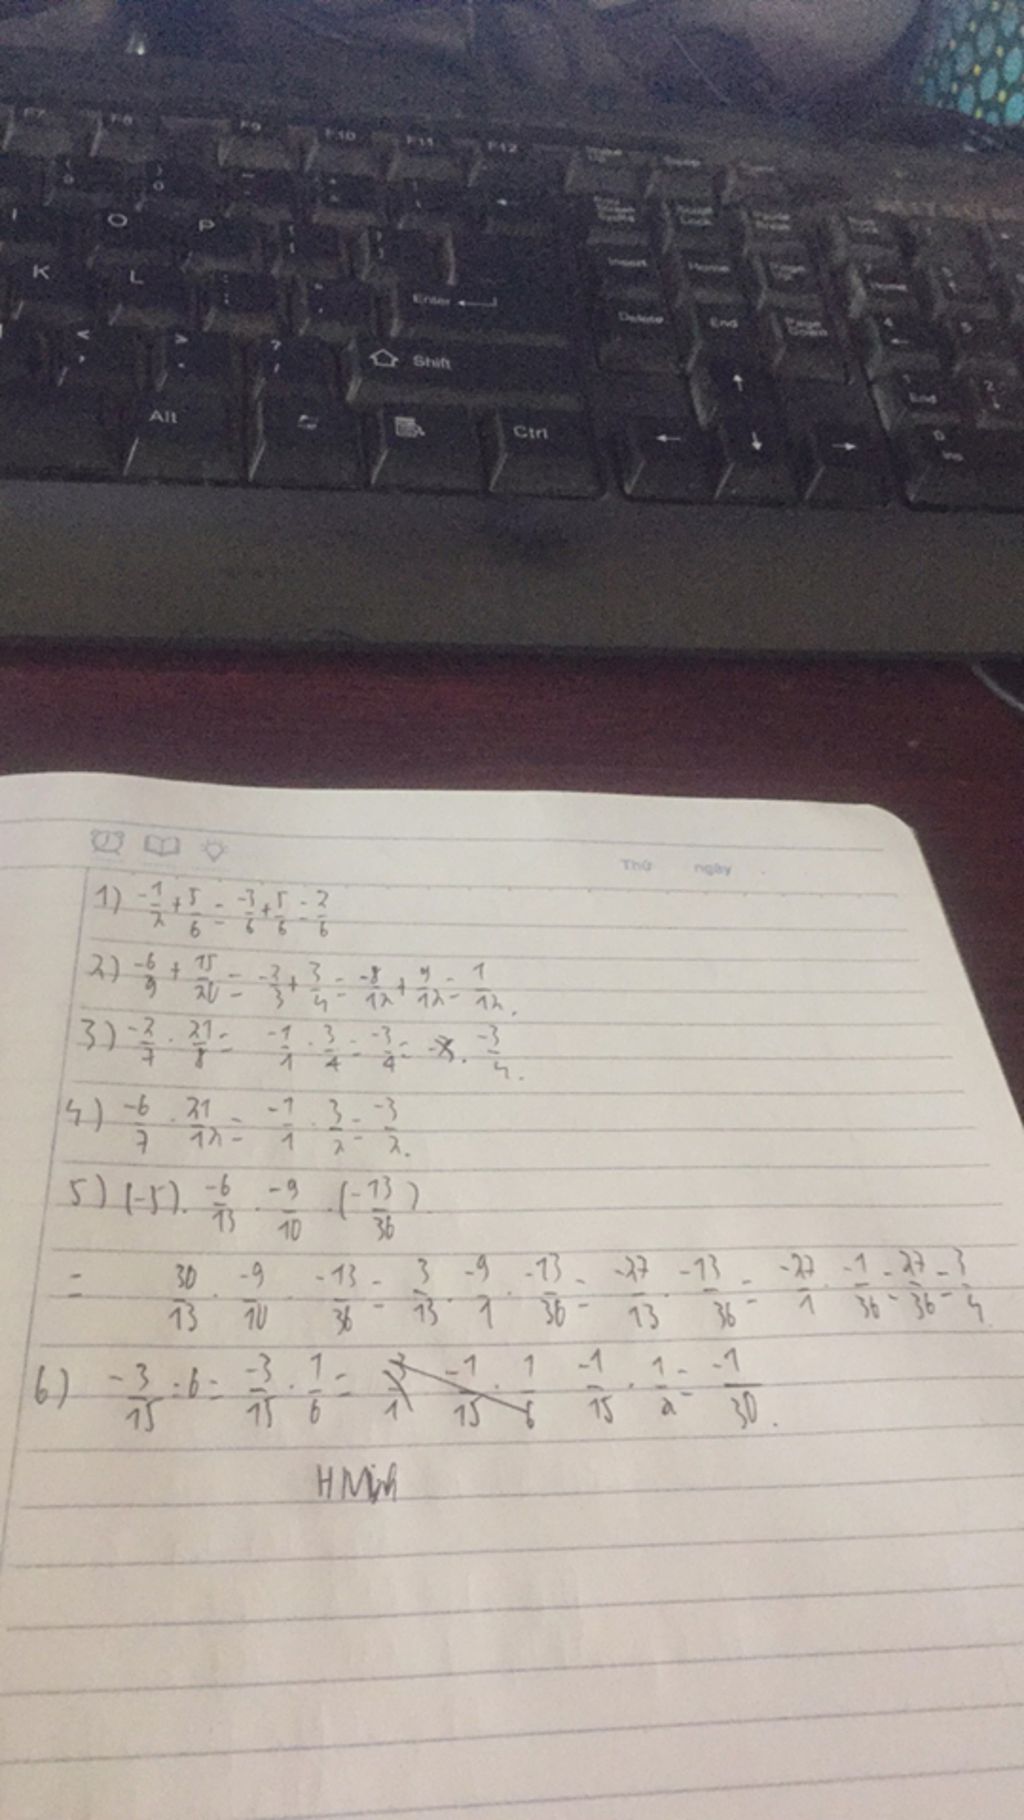 F7 F8 F9 F10 F11 F12
O P
K L Enter Insert Home
Delete End Page Down
Shift
Alt Ctrl
End
Ins
Thứ ngày
1) -1/2 + 5/6 = -3/6 + 5/6 = 2/6
2) -6/9 + 15/20 = -2/3 + 3/4 = -8/12 + 9/12 = 1/12.
3) -2/7 . 21/8 = -1/1 . 3/4 = -3/4 = . -3/4.
4) -6/7 . 21/12 = -1/1 . 3/2 = -3/2.
5) (-5). -6/13 . -9/10 . (-13/36)
= 30/13 . -9/10 . -13/36 = 3/13 . -9/1 . -13/36 = -27/13 . -13/36 = -27/1 . -1/36 = 27/36 = 3/4
6) -3/15 : 6 = -3/15 . 1/6 = -1/15 . 1/2 = -1/30.
H Minh